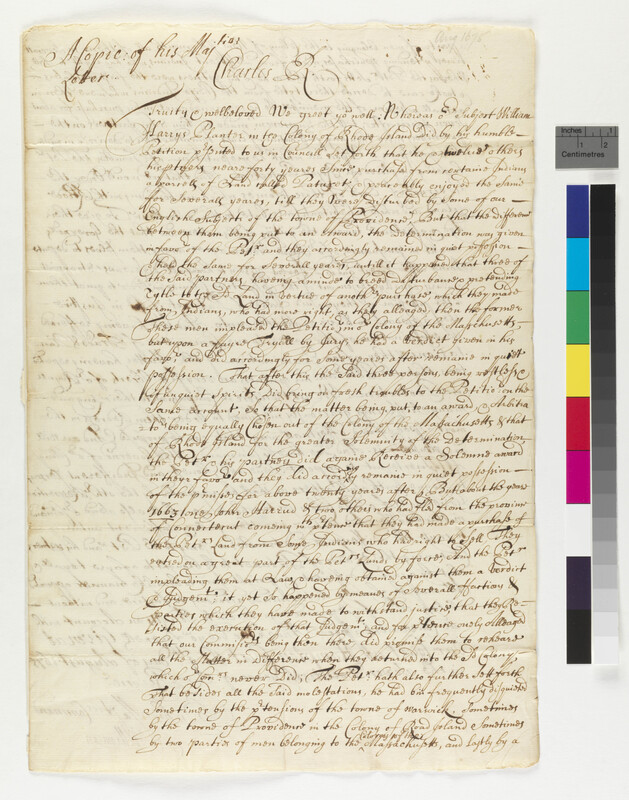 A Copie of his Maj:ties
Letter
Aug 1675
Charles R.
Trusty & welbeloved We greet yo well. Whereas or Subject William
Harrys Plantr in the Colony of Rhode Island did by his humble
Petition psented to us in Councill Set forth that he & twelve others
his ptners neare forty yeares since purchase from certaine Indians
a parcell of Land called Patuxet & peaceably enjoyed the same
for severall yeares, till they were disturbed by some of our
English subjects of the towne of Providence. But that the differenc
between them being put to an award, the determination was given
in favor of the Petr and they accordingly remained in quiet possession
of the same for severall yeares, untill it happened that three of
the said partners haveing a minde to breed disturbance pretending
tytle to the sd Land in vertue of anothr purchase which they made
from Indians, who had more right, as they alleaged, then the former
These men impleaded the Petitir in or Colony of the Masschusetts
but upon a fayre Tryell by Jury he had a verdict given in his
favor and did accordingly for some yeares after remaine in quiet
possession. That after this the said three persons being restless &
of unquiet spirits, did bring on fresh troubles to the Petitir on the
same account, so that the matter being put to an award & Arbitra
to being equally chosen out of the Colony of the Massachusetts & that
of Rhode Island for the greater solemnity of the determination
the Petr & his partners did againe Receive a Solemne award
in theyr favor and they did accordingly remaine in quiet possession
of the pmisses for above twenty yeares after, But about the yeare
1663 one John Harrud & two others who had fled from the province
of Connecticut comeing on ptence that they had made a purchase of
the Petrs Land from some Indians who had right to sell They
entred on a great part of the Petrs Lands by force, And the Petr
impleading them at Law & haveing obtained against them a verdict
& Judgemt; it yet so happened by meanes of severall ffactions &
parties which they have made to withstand justice, that they Re-
sisted the execution of that Judgemt; and for ptence only alleaged
that our Commissrs being then there did promise them to reheare
all the Matter in difference when they returned into the sd Colony,
which or Comrs never did; The Petr hath also further sett forth
that besides all the said molestations, he had bin frequently disquieted
sometimes by the ptensions of the towne of Warwick, sometimes
by the towne of Providence in the Colony of Road Island Sometimes
by two parties of men belonging to the Colony of the Massachusetts, and lastly by a
Inches
1
2
Centimetres